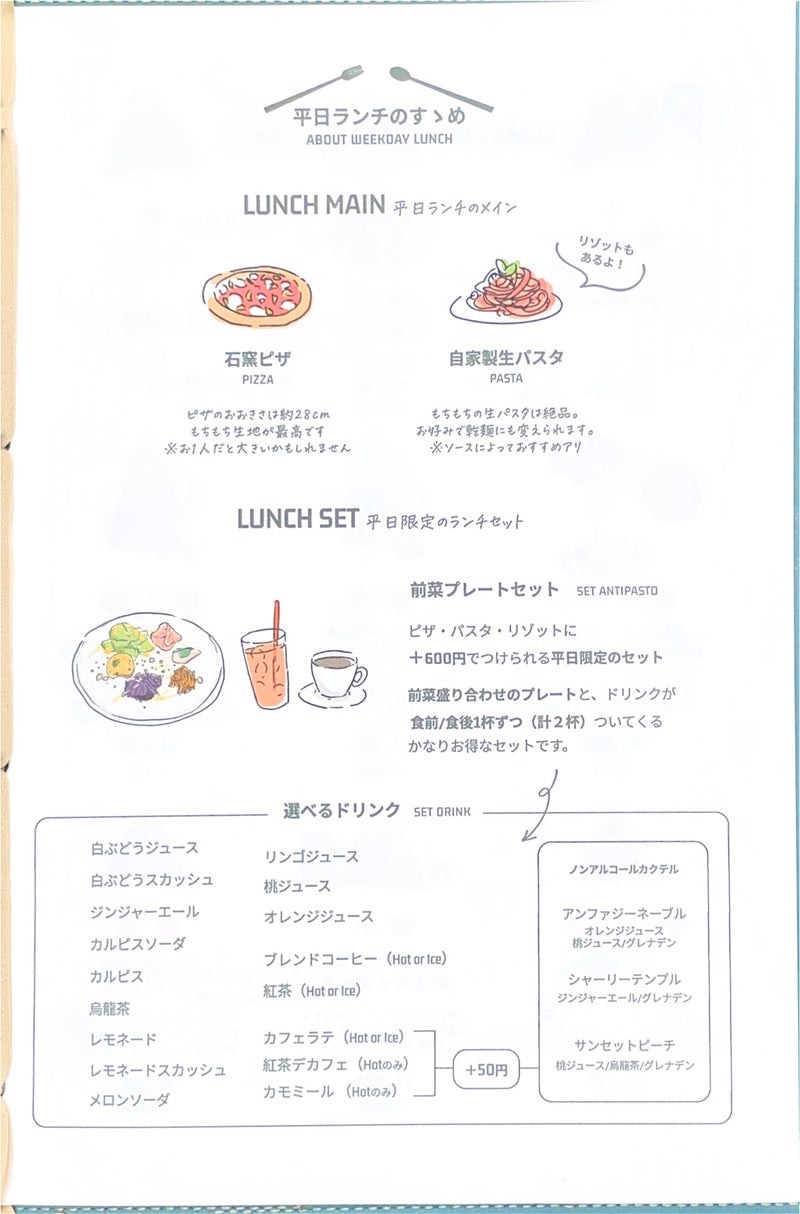 平日ランチのすゝめ
ABOUT WEEKDAY LUNCH
LUNCH MAIN 平日ランチのメイン
リゾットも
あるよ！
石窯ピザ
PIZZA
ピザのおおきさは約28cm
もちもち生地が最高です
※お1人だと大きいかもしれません
自家製生パスタ
PASTA
もちもちの生パスタは絶品。
お好みで乾麺にも変えられます。
※ソースによっておすすめアリ
LUNCH SET 平日限定のランチセット
前菜プレートセット SET ANTIPASTO
ピザ・パスタ・リゾットに
＋600円でつけられる平日限定のセット
前菜盛り合わせのプレートと、ドリンクが
食前/食後1杯ずつ（計２杯）ついてくる
かなりお得なセットです。
選べるドリンク SET DRINK
白ぶどうジュース
白ぶどうスカッシュ
ジンジャーエール
カルピスソーダ
カルピス
烏龍茶
レモネード
レモネードスカッシュ
メロンソーダ
リンゴジュース
桃ジュース
オレンジジュース
ブレンドコーヒー（Hot or Ice）
紅茶（Hot or Ice）
カフェラテ（Hot or Ice）
紅茶デカフェ（Hotのみ）
カモミール（Hotのみ）
+50円
ノンアルコールカクテル
アンファジーネーブル
オレンジジュース
桃ジュース/グレナデン
シャーリーテンプル
ジンジャーエール/グレナデン
サンセットピーチ
桃ジュース/烏龍茶/グレナデン